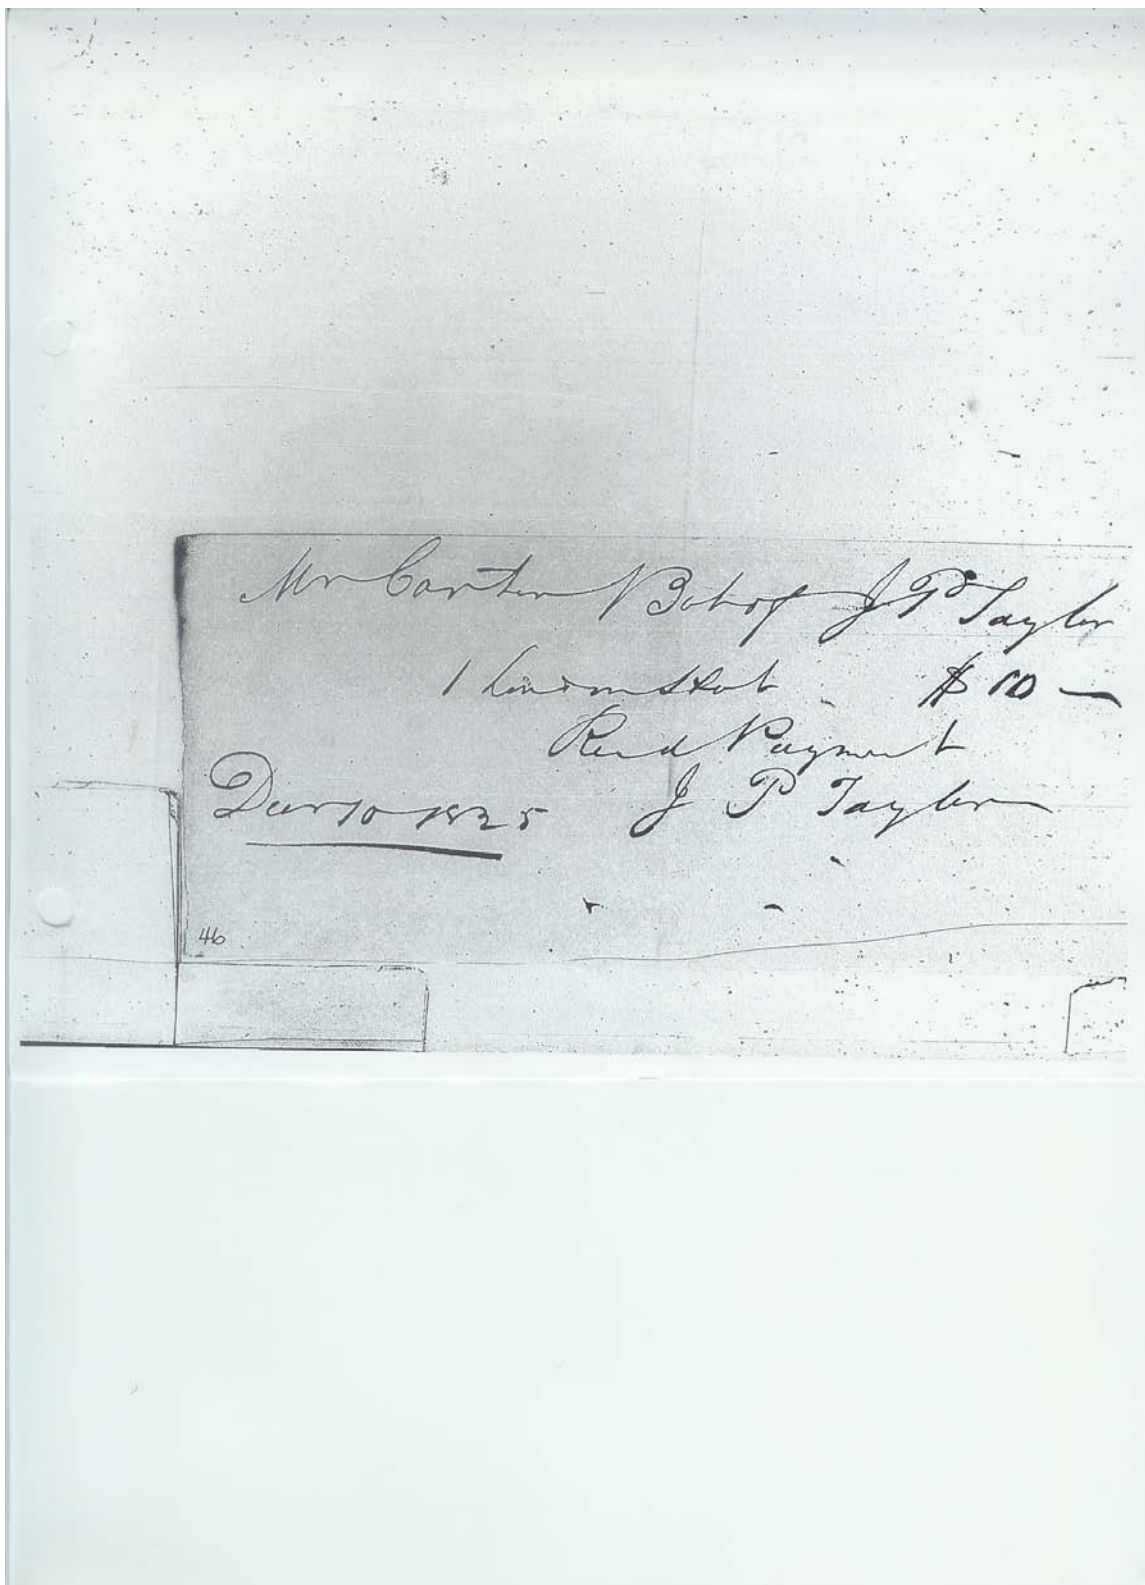 Mr Carter Bot of J P Taylor
1 Hat $10 —
Recd Payment
Decr 10 1825 J P Taylor
46